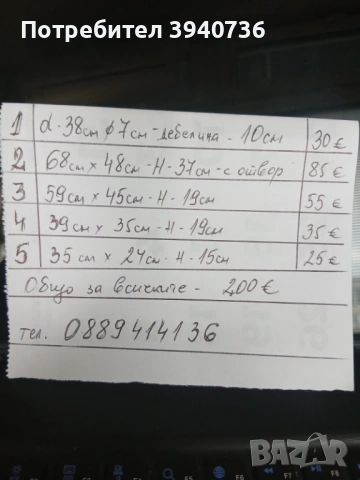 Потребител 3940736
1 d-38см ф7см-дебелина-10см 30€
2 68см х 48см-H-37см-с отвор 85€
3 59см х 45см-H-19см 55€
4 39см х 35см-H-19см 35€
5 35см х 24см-H-15см 25€
Общо за всичките - 200€
тел. 0889414136
BAZAR
F6
F7
F8
F9